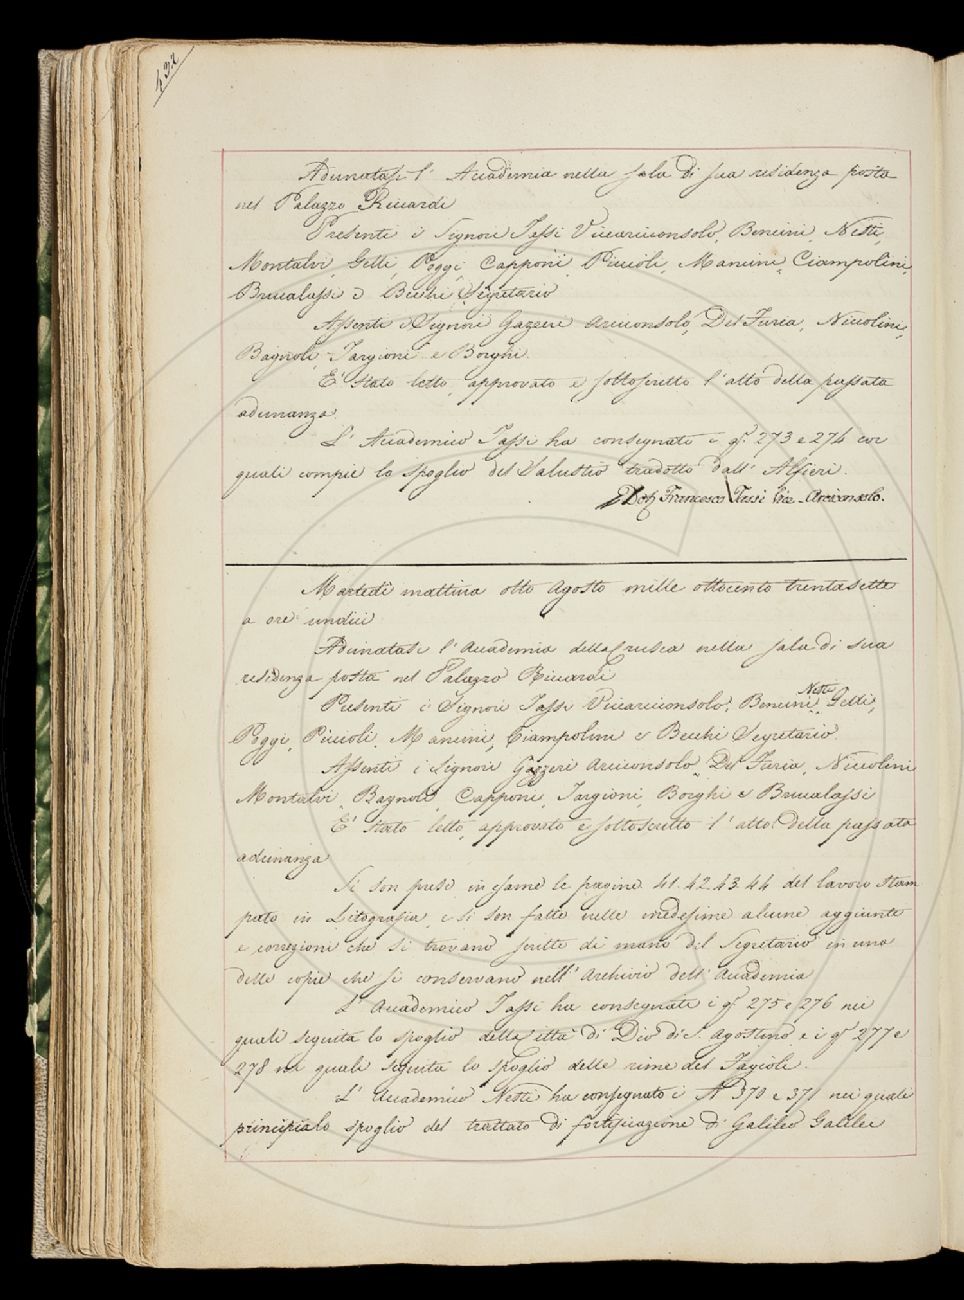 432
Adunatasi l' Accademia nella sala di sua residenza posta
nel Palazzo Riccardi
Presenti i Signori Tassi Vicearciconsolo, Bencini, Nesti,
Montalvi, Gelli, Poggi, Capponi, Piccioli, Mancini, Ciampolini,
Brucalassi e Becchi Segretario
Assenti i Signori Gazzeri Arciconsolo, Del Furia, Niccolini,
Bagnoli, Targioni e Borghi.
E' stato letto, approvato e sottoscritto l'atto della passata
adunanza.
L' Accademico Tassi ha consegnati i q.i 273 e 274 coi
quali compie lo spoglio del Salustio tradotto dall' Alfieri.
Dott. Francesco Tassi Vice-Arciconsolo.
Martedì mattina otto Agosto mille ottocento trentasette
a ore undici
Adunatasi l' Accademia della Crusca nella sala di sua
residenza posta nel Palazzo Riccardi
Presenti i Signori Tassi Vicearciconsolo, Bencini, Nesti, Gelli,
Poggi, Piccioli, Mancini, Ciampolini e Becchi Segretario.
Assenti i Signori Gazzeri Arciconsolo, Del Furia, Niccolini
Montalvi, Bagnoli, Capponi, Targioni, Borghi e Brucalassi
E' stato letto, approvato e sottoscritto l'atto della passata
adunanza
Si son prese in esame le pagine 41. 42. 43. 44 del lavoro stam
pato in Litografia, e si son fatte nelle medesime alcune aggiunte
e correzioni che si trovano scritte di mano del Segretario in una
delle copie che si conservano nell' Archivio dell' Accademia
L' Accademico Tassi ha consegnati i q.i 275 e 276 nei
quali seguita lo spoglio della Città di Dio di S. Agostino, e i q.i 277 e
278 nei quali seguita lo spoglio delle rime del Fagioli.
L' Accademico Nesti ha consegnato i N.i 370 e 371 nei quali
principia lo spoglio del trattato di fortificazione di Galileo Galilei